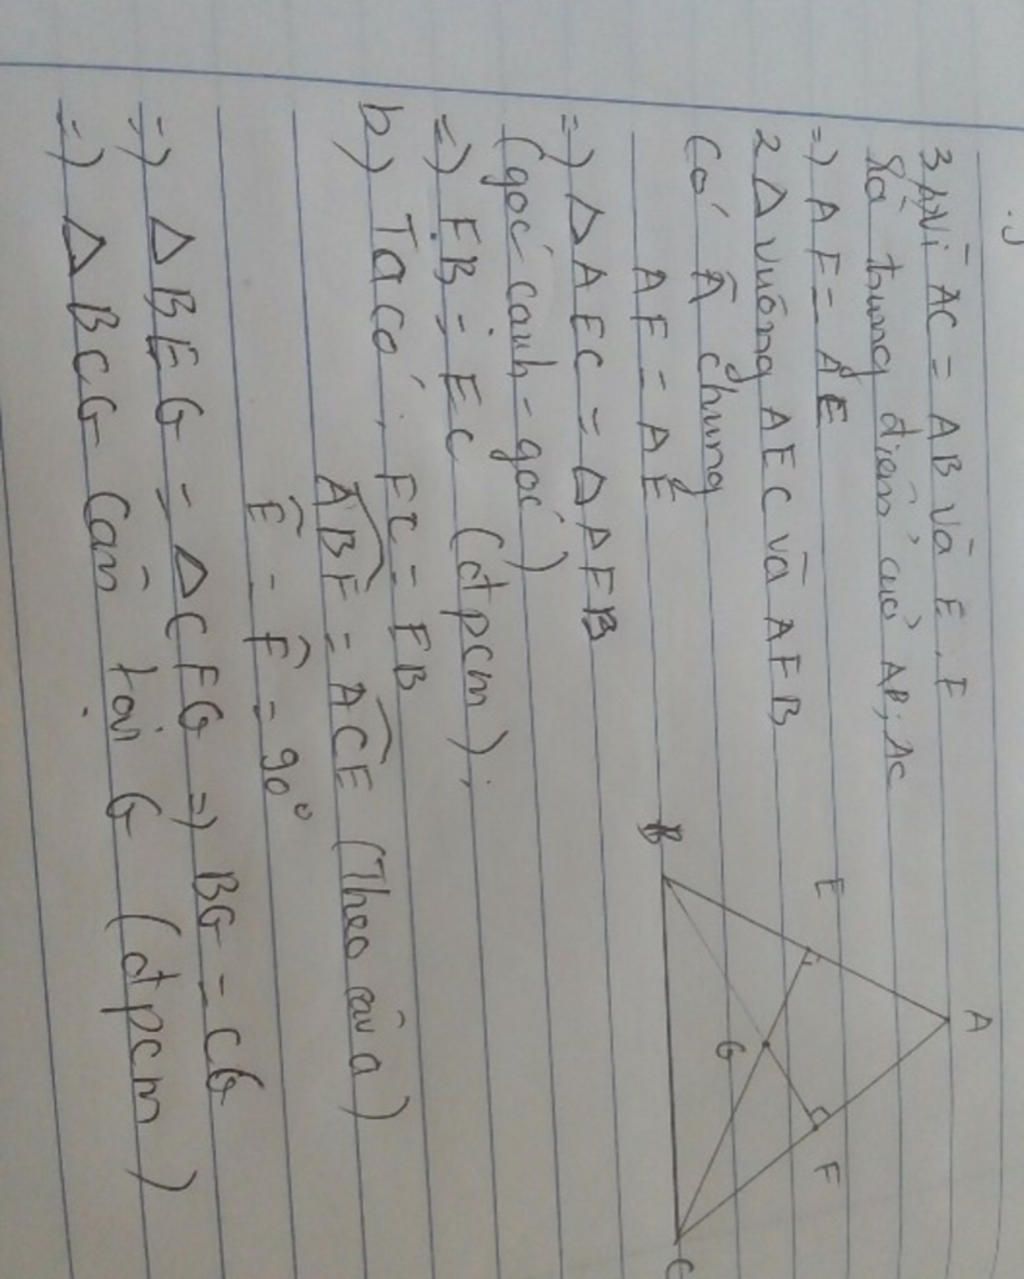 3 a) Vì AC = AB và E, F
là trung điểm của AB; AC
=) AF = AE
2 Δ vuông AEC và AFB
Có Â chung
AF = AE
=) Δ AEC = Δ AFB
(góc cạnh - góc)
=) FB = EC (đpcm);
b) Ta có: FC = FB
ABF = ACE (Theo câu a)
Ê = F̂ = 90°
=) Δ BEG = Δ CFG =) BG = CG
=) Δ BCG Cân tại G (đpcm)
A
E
F
B
G
C